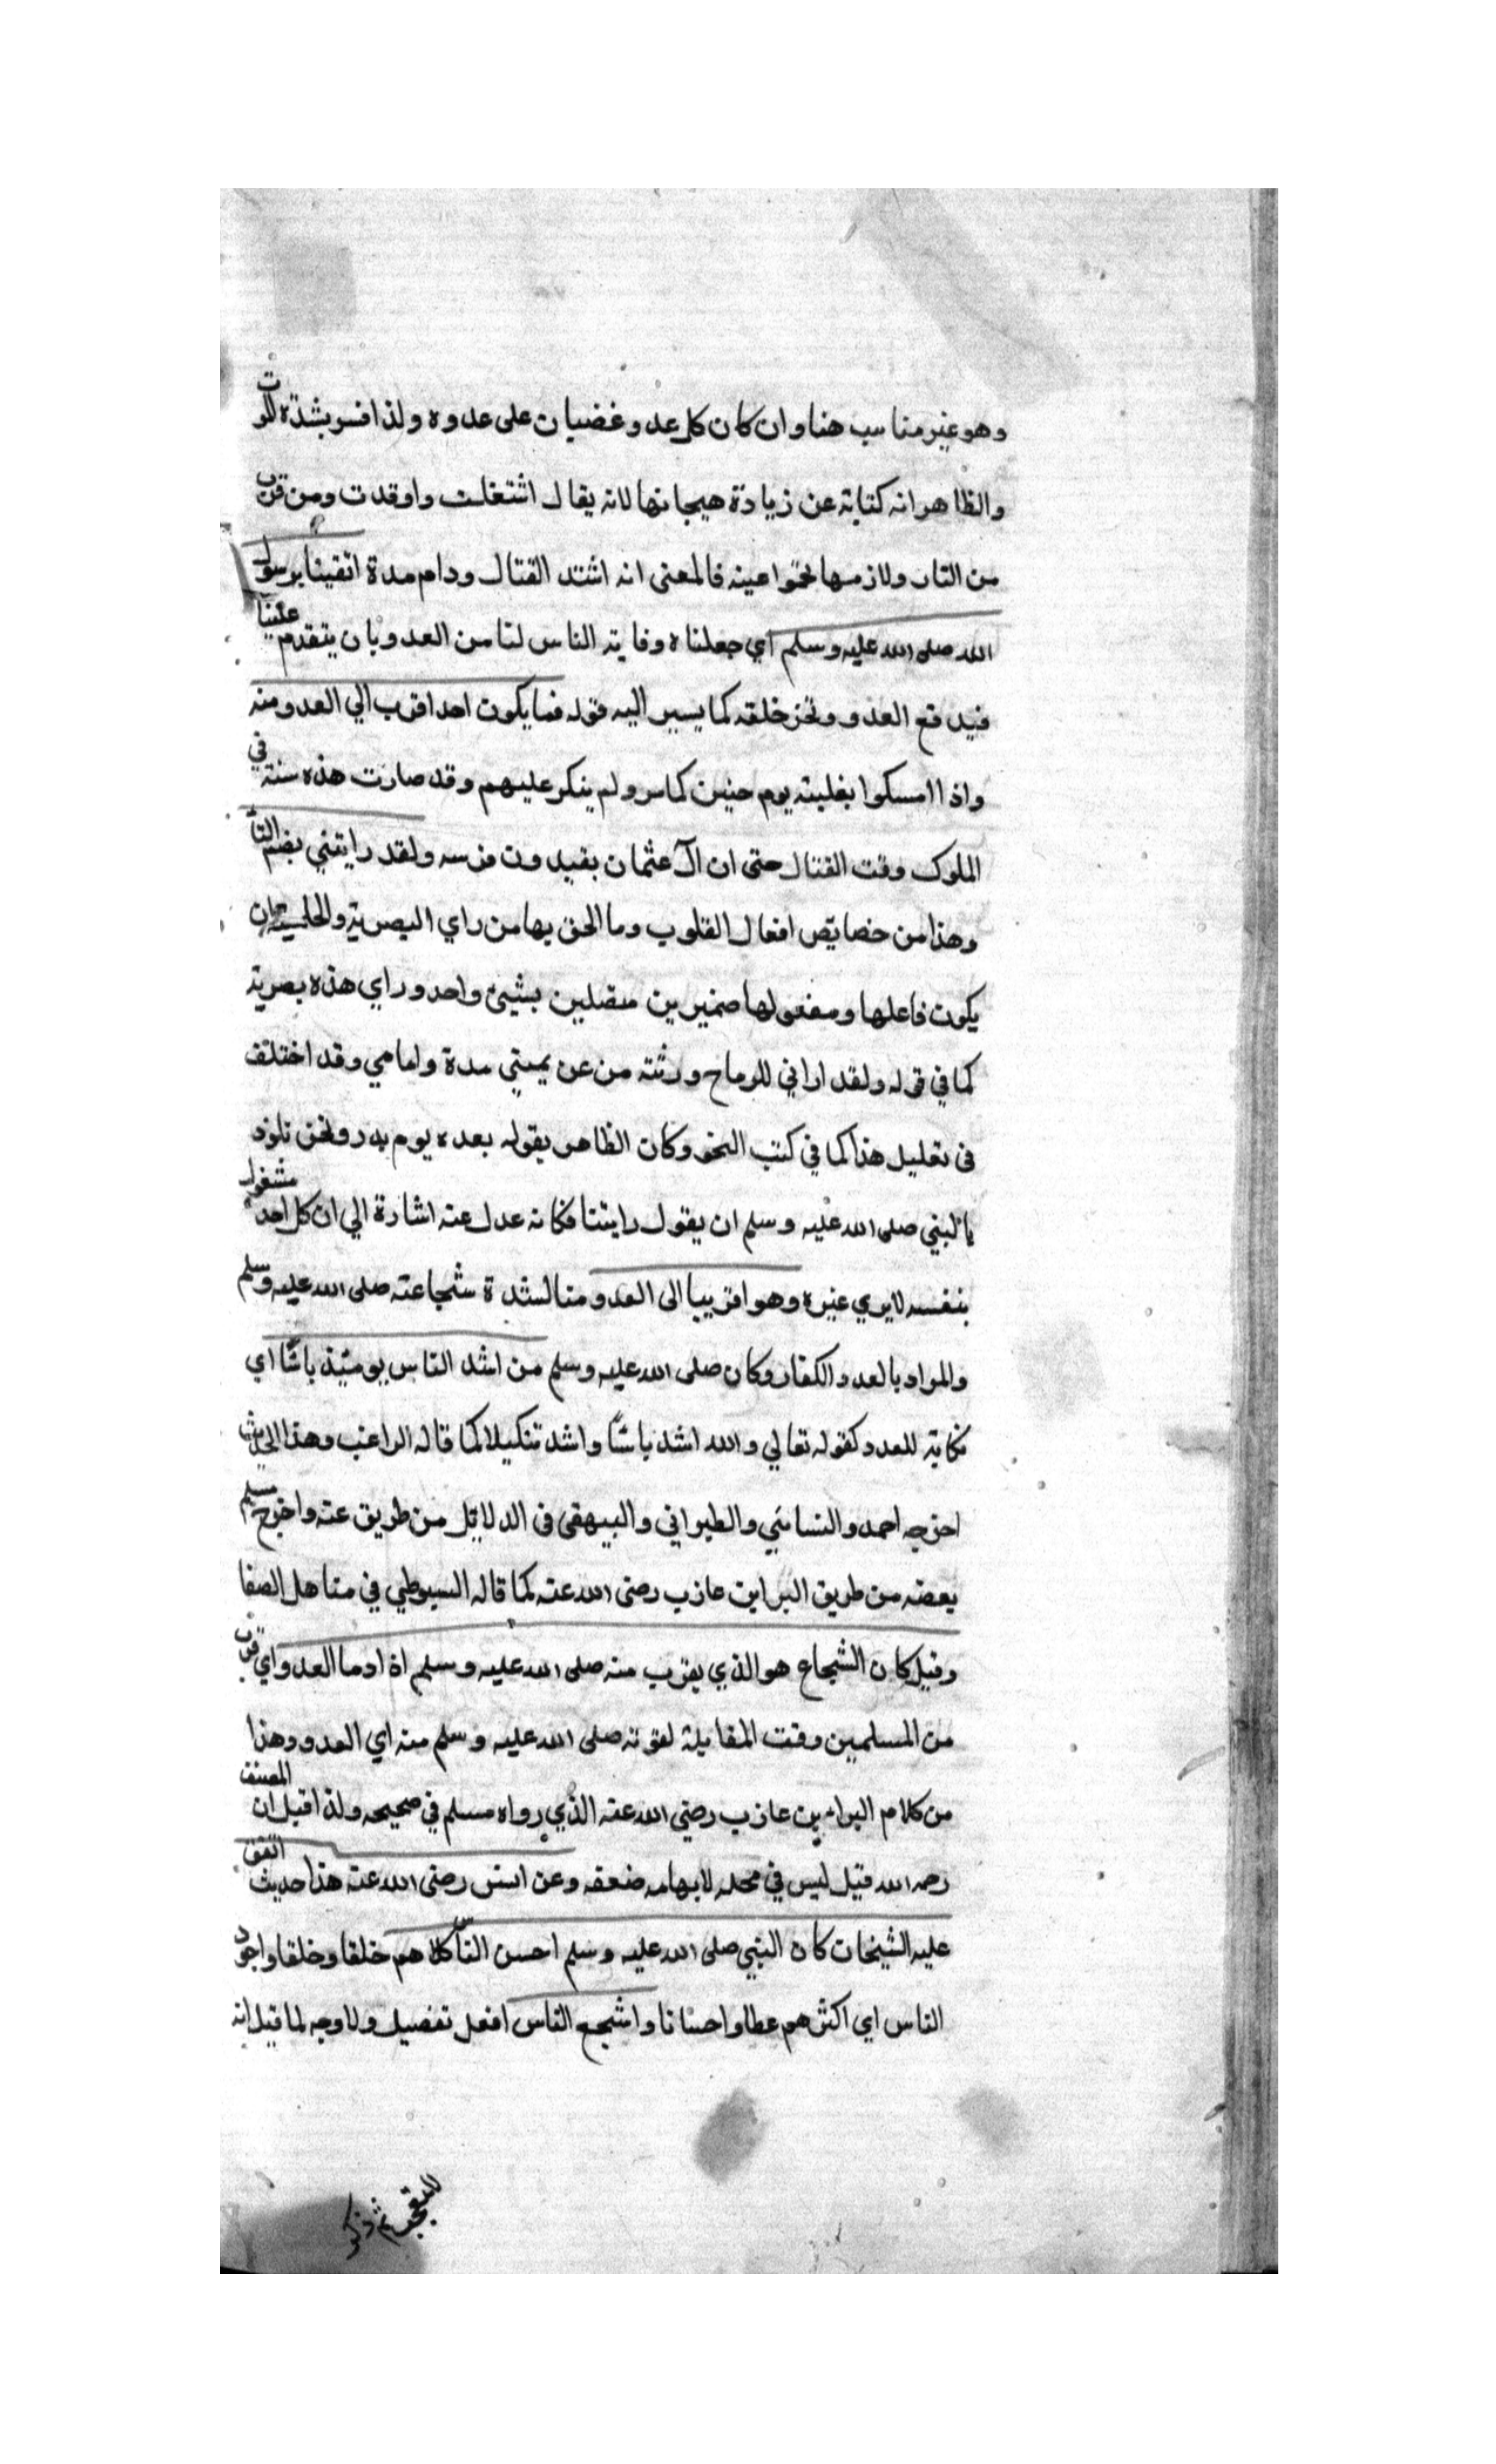 وهو غير مناسب هنا وان كان كل عدو غضبان على عدوه ولذا فسر بشدة الموت
والظاهر انه كناية عن زيادة هيجانها لانه يقال اشتغلت واوقدت ومن قرب
من النار ولازمها تحمر عينه فالمعنى انه اشتد القتال ودام مدة اتقينا برسول
الله صلى الله عليه وسلم اي جعلناه وقاية الناس لنا من العدو بان يتقدم علينا
فيدفع العدو ونحن خلفه كما يسير اليه قوله فما يكون احد اقرب الي العدو منه
واذا امسكوا بغلبته يوم حنين كما مر ولم ينكر عليهم وقد صارت هذه سنة في
الملوك وقت القتال حتى ان آل عثمان يقيدون فرسه ولقد رايتني بضم التا
وهذا من خصايص افعال القلوب وما الحق بها من راي البصرية والحلمية ان
يكون فاعلها ومفعولها ضميرين متصلين بشيئ واحد وراي هذه بصرية
كما في قوله ولقد اراني للرماح ورثته من عن يميني مدة وامامي وقد اختلف
في تعليل هذا كما في كتب النحو وكان الظاهر بقوله بعده يوم بدر ونحن نلوذ
بالنبي صلى الله عليه وسلم ان يقول رايتنا فكانه عدل عنه اشارة الي ان كل احد مشغول
بنفسه لا يري غيره وهو اقريبا الى العدو منا لشدة شجاعته صلى الله عليه وسلم
والمراد بالعدو الكفار وكان صلى الله عليه وسلم من اشد الناس يومئذ باسًا اي
نكاية للعدو كقوله تعالي والله اشد باسًا واشد تنكيلا كما قاله الراغب وهذا الحديث
اخرجه احمد والنسائي والطبراني والبيهقي في الدلايل من طريق عنه واخرج مسلم
بعضه من طريق البرا بن عازب رضى الله عنه كما قاله السيوطي في مناهل الصفا
وقيل كان الشجاع هو الذي يقرب منه صلى الله عليه وسلم اذا دما العدو اي قرب
من المسلمين وقت المقابلة لقوته صلى الله عليه وسلم منه اي العدو وهذا
من كلام البراء بن عازب رضي الله عنه الذي رواه مسلم في صحيحه ولذا قيل ان المصنف
رحمه الله قيل ليس في محله لابهامه ضعفه وعن انس رضى الله عنه هذا حديث اتفق
عليه الشيخان كان النبي صلى الله عليه وسلم احسن الناس كلاهم خلقا وخلقا واجود
الناس اي اكثرهم عطا واحسانا واشجع الناس افعل تفضيل ولا وجه لما قيل انه
للتعجب ثم ذكر